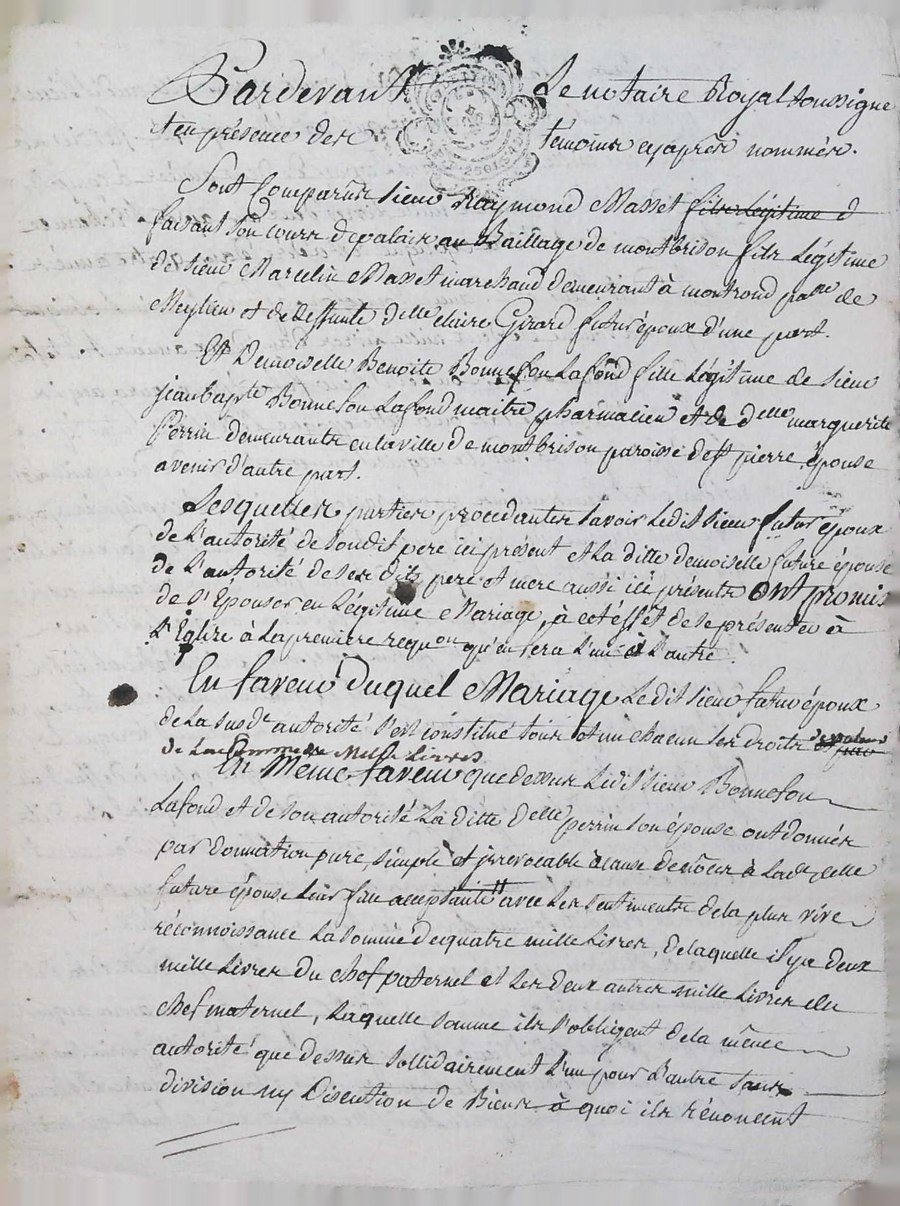 Pardevant Le notaire Royal soussigné
et en présence des témoins cyaprès nommés.
Sont Comparûs sieur Raymond Masset fils légitime d
faisant son cours de palais au Baillage de montbrison fils Légitime
de sieur Marcelin Masset marchand demeurant à montrond passe de
Meylieu et de deffunte delle claire Girard futur époux d'une part.
Et Demoiselle Benoite Bonnefon Lafond fille Légitime de sieur
jean bapte Bonnefon Lafond maitre pharmacien et de delle marguerite
Perrin demeurante en la ville de montbrison paroisse de st pierre, épouse
avenir d'autre part.
Lesquelles parties procedantes savoir Ledit sieur futur époux
de L'autorité de sondit pere ici présent et La ditte demoiselle future épouse
de L'autorité de ses dits pere et mere aussi ici présents ont promis
de s'Epouser en Légitime Mariage, à cet effet de se présenter à
L'Eglise à La première requon qu'en sera L'un à L'autre.
En faveur Duquel Mariage Ledit sieur futur époux
de La susde autorité s'est constitué tous et un chacun ses droits
de La somme de Mille Livres
En Meme faveur que dessus Ledit sieur Bonnefon
Lafond et de son autorité La ditte Delle perrin son épouse ont donnés
par donnation pure, simple et irrevocable à cause de nôces à Lade delle
future épouse Leur fille acceptante avec Les sentiments de la plus vive
réconnoissance La somme de quatre mille Livres, de laquelle il y a deux
mille Livres du chef paternel et Les deux autres mille Livres du
chef maternel, Laquelle somme ils s'obligent de la même
autorité que dessus sollidairement L'un pour L'autre sans
division ny Discution de Biens à quoi ils rénoncent